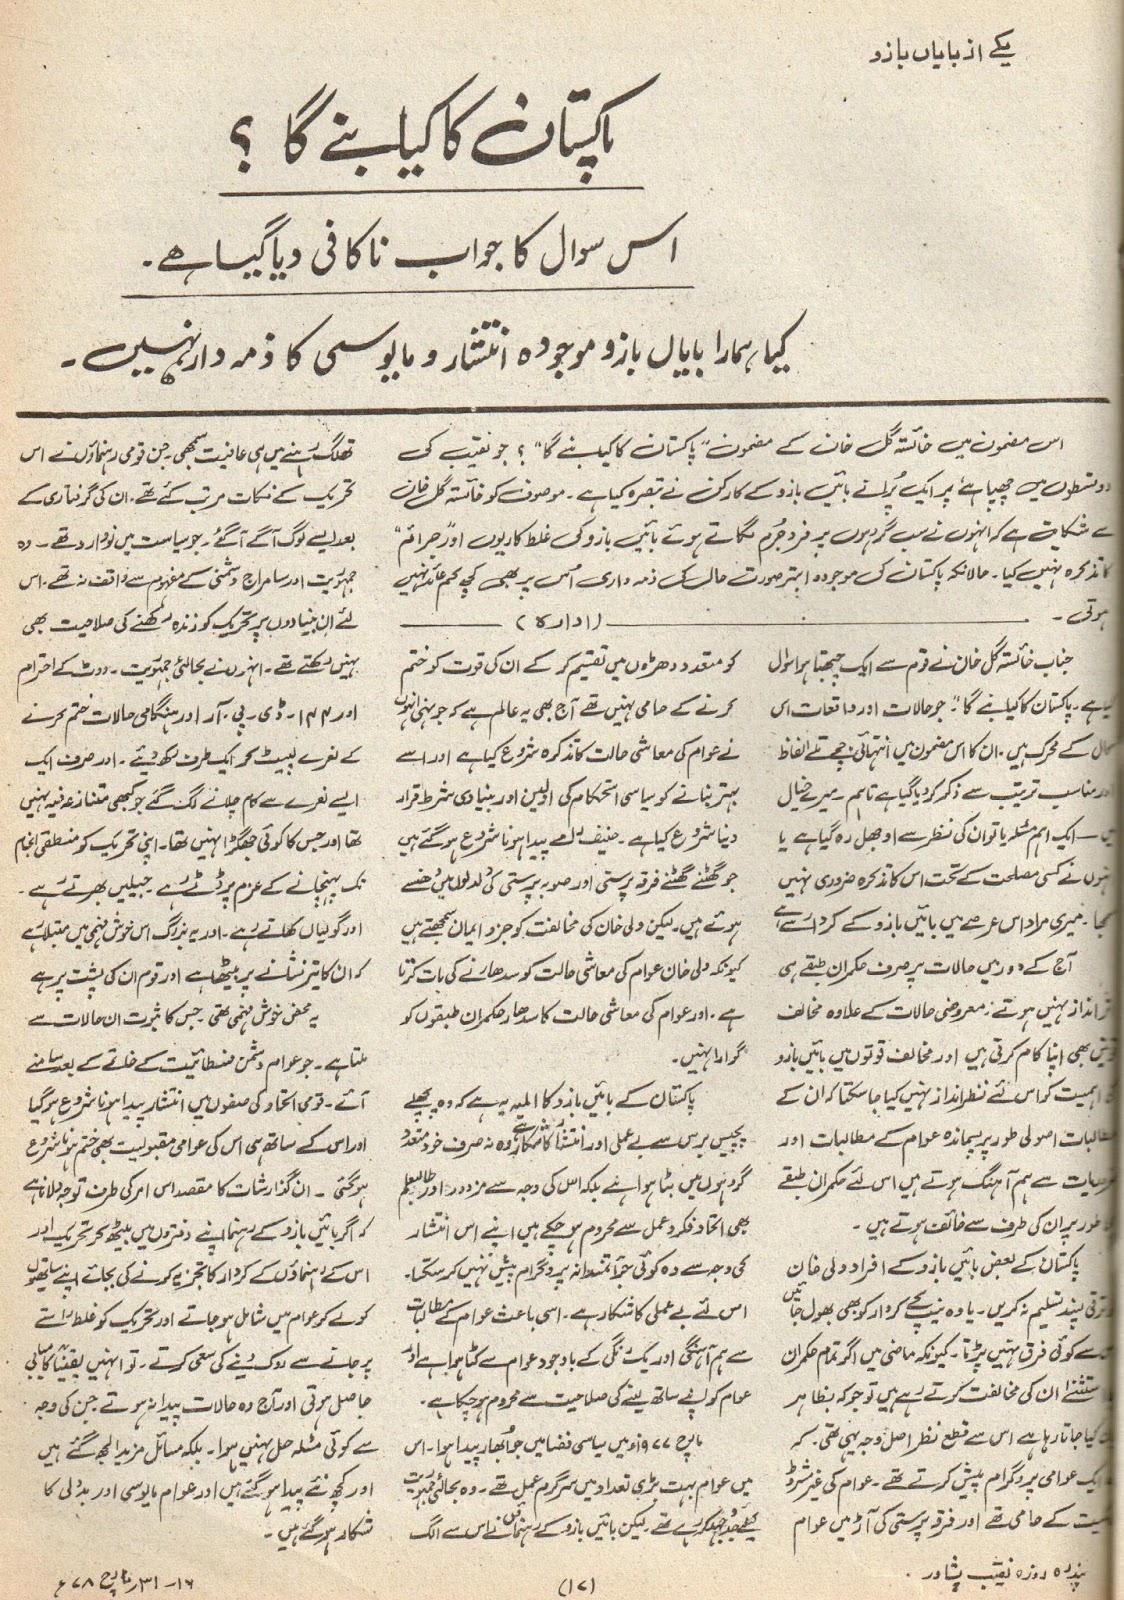 یکے از بایاں بازو
پاکستان کا کیا بنے گا ؟
اس سوال کا جواب ناکافی دیا گیا ہے ۔
کیا ہمارا بایاں بازو موجودہ انتشار و مایوسی کا ذمہ دار نہیں ۔
اس مضمون میں خائستہ گل خان کے مضمون "پاکستان کا کیا بنے گا" ؟ جو نقیب کی
دو قسطوں میں چھپا ہے پر ایک پرانے بائیں بازو کے کارکن نے تبصرہ کیا ہے ۔ موصوف کو خائستہ گل خان
سے شکایت ہے کہ انہوں نے سب گروہوں پر فرد جرم لگاتے ہوئے بائیں بازو کی غلط کاریوں اور "جرائم"
کا تذکرہ نہیں کیا ۔ حالانکہ پاکستان کی موجودہ ابتر صورت حال کی ذمہ داری اس پر بھی کچھ کم عائد نہیں
ہوتی ۔
(ادارہ)
جناب خائستہ گل خان نے قوم سے ایک چبھتا ہوا سوال
کیا ہے ۔ پاکستان کا کیا بنے گا" ۔ جو حالات اور واقعات اس
سوال کے محرک ہیں ۔ ان کا اس مضمون میں انتہائی جچے تلے الفاظ
اور مناسب ترتیب سے ذکر کر دیا گیا ہے تاہم ۔ میرے خیال
میں — ایک اہم مسئلہ یا تو ان کی نظر سے اوجھل رہ گیا ہے یا
انہوں نے کسی مصلحت کے تحت اس کا تذکرہ ضروری نہیں
سمجھا ۔ میری مراد اس عرصے میں بائیں بازو کے کردار سے ہے
آج کے دور میں حالات پر صرف حکمران طبقے ہی
اثر انداز نہیں ہوتے ۔ معروضی حالات کے علاوہ مخالف
قوتیں بھی اپنا کام کرتی ہیں اور مخالف قوتوں میں بائیں بازو
کی اہمیت کو اس لئے نظر انداز نہیں کیا جا سکتا کہ ان کے
مطالبات اصولی طور پر پسماندہ عوام کے مطالبات اور
سے ہم آہنگ ہوتے ہیں اس لئے حکمران طبقے
طور پر ان کی طرف سے خائف ہوتے ہیں ۔
پاکستان کے بعض بائیں بازو کے افراد ولی خان
کو ترقی پسند تسلیم نہ کریں ۔ یا وہ نیپ کے کردار کو بھی بھول جائیں
سے کوئی فرق نہیں پڑتا ۔ کیونکہ ماضی میں اگر تمام حکمران
ان کی مخالفت کرتے رہے ہیں تو جو کہ بظاہر
کیا جاتا رہا ہے اس سے قطع نظر اصل وجہ یہی تھی ۔ کہ
ایک عوامی پروگرام پیش کرتے تھے ۔ عوام کی غیر مشروط
کے حامی تھے اور فرقہ پرستی کی آڑ میں عوام
کو متعدد دھڑوں میں تقسیم کر کے ان کی قوت کو ختم
کرنے کے حامی نہیں تھے آج بھی یہ عالم ہے کہ جونہی انہوں
نے عوام کی معاشی حالت کا تذکرہ شروع کیا ہے اور اسے
بہتر بنانے کو سیاسی استحکام کی اولین اور بنیادی شرط قرار
دینا شروع کیا ہے ۔ حنیف رامے پیدا ہونا شروع ہو گئے ہیں
جو گھٹنے گھٹنے فرقہ پرستی اور صوبہ پرستی کی دلدلوں میں دھنسے
ہوئے ہیں ۔ لیکن ولی خان کی مخالفت کو جزو ایمان سمجھتے ہیں
کیونکہ ولی خان عوام کی معاشی حالت کو سدھارنے کی بات کرتا
ہے ۔ اور عوام کی معاشی حالت کا سدھار حکمران طبقوں کو
گوارا نہیں ۔
پاکستان کے بائیں بازو کا المیہ یہ ہے کہ وہ پچھلے
پچیس برس سے بے عملی اور انتشار کا شکار ہے وہ نہ صرف خود متعدد
گروہوں میں بٹا ہوا ہے بلکہ اس کی وجہ سے مزدور اور طالبعلم
بھی اتحاد فکر و عمل سے محروم ہو چکے ہیں اپنے اس انتشار
کی وجہ سے وہ کوئی جرأتمندانہ پروگرام پیش نہیں کر سکتا ۔
اس لئے بے عملی کا شکار ہے ۔ اسی باعث عوام کے مطالبات
سے ہم آہنگی اور یک رنگی کے باوجود عوام سے کٹا ہوا ہے اور
عوام کو اپنے ساتھ لینے کی صلاحیت سے محروم ہو چکا ہے ۔
مارچ ۷۷ء میں سیاسی فضا میں جو ابھار پیدا ہوا ۔ اس
میں عوام بہت بڑی تعداد میں سرگرم عمل تھے ۔ وہ بحالئی جمہوریت
کیلئے جدوجہد کر رہے تھے ۔ لیکن بائیں بازو کے رہنماؤں نے اس سے الگ
تھلگ رہنے میں ہی عافیت سمجھی ۔ جن قومی رہنماؤں نے اس
تحریک کے نکات مرتب کئے تھے ۔ ان کی گرفتاری کے
بعد ایسے لوگ آگے آ گئے ۔ جو سیاست میں نووارد تھے ۔ وہ
جمہوریت اور سامراج دشمنی کے مفہوم سے واقف نہ تھے ۔ اس
لئے ان بنیادوں پر تحریک کو زندہ رکھنے کی صلاحیت بھی
نہیں رکھتے تھے ۔ انہوں نے بحالئی جمہوریت ۔ ووٹ کے احترام
اور ۱۴۴ ۔ ڈی ۔ پی ۔ آر اور ہنگامی حالات ختم کرنے
کے نعرے لپیٹ کر ایک طرف رکھ دیئے ۔ اور صرف ایک
ایسے نعرے سے کام چلانے لگ گئے جو کبھی متنازعہ فیہ نہیں
تھا اور جس کا کوئی جھگڑا نہیں تھا ۔ اپنی تحریک کو منطقی انجام
تک پہنچانے کے عزم پر ڈٹے رہے ۔ جیلیں بھرتے رہے ۔
اور گولیاں کھاتے رہے ۔ اور یہ بزرگ اس خوش فہمی میں مبتلا رہے
کہ ان کا تیر نشانے پر بیٹھا ہے اور قوم ان کی پشت پر ہے
یہ محض خوش فہمی تھی ۔ جس کا ثبوت ان حالات سے
ملتا ہے ۔ جو عوام دشمن فسطائیت کے خاتمے کے بعد سامنے
آئے ۔ قومی اتحاد کی صفوں میں انتشار پیدا ہونا شروع ہو گیا
اور اس کے ساتھ ہی اس کی عوامی مقبولیت بھی ختم ہونا شروع
ہو گئی ۔ ان گذارشات کا مقصد اس امر کی طرف توجہ دلانا ہے
کہ اگر بائیں بازو کے رہنما اپنے دفتروں میں بیٹھ کر تحریک اور
اس کے رہنماؤں کے کردار کا تجزیہ کرنے کی بجائے اپنے ساتھیوں
کو لے کر عوام میں شامل ہو جاتے اور تحریک کو غلط راستے
پر جانے سے روک دینے کی سعی کرتے ۔ تو انہیں یقیناً کامیابی
حاصل ہوتی اور آج وہ حالات پیدا نہ ہوتے جن کی وجہ
سے کوئی مسئلہ حل نہیں ہوا ۔ بلکہ مسائل مزید الجھ گئے ہیں
اور کچھ نئے پیدا ہو گئے ہیں اور عوام مایوسی اور بددلی کا
شکار ہو گئے ہیں ۔
پندرہ روزہ نقیب پشاور ۔
(۱۷)
۱۶ ۔ ۳۱ مارچ ۷۸ء